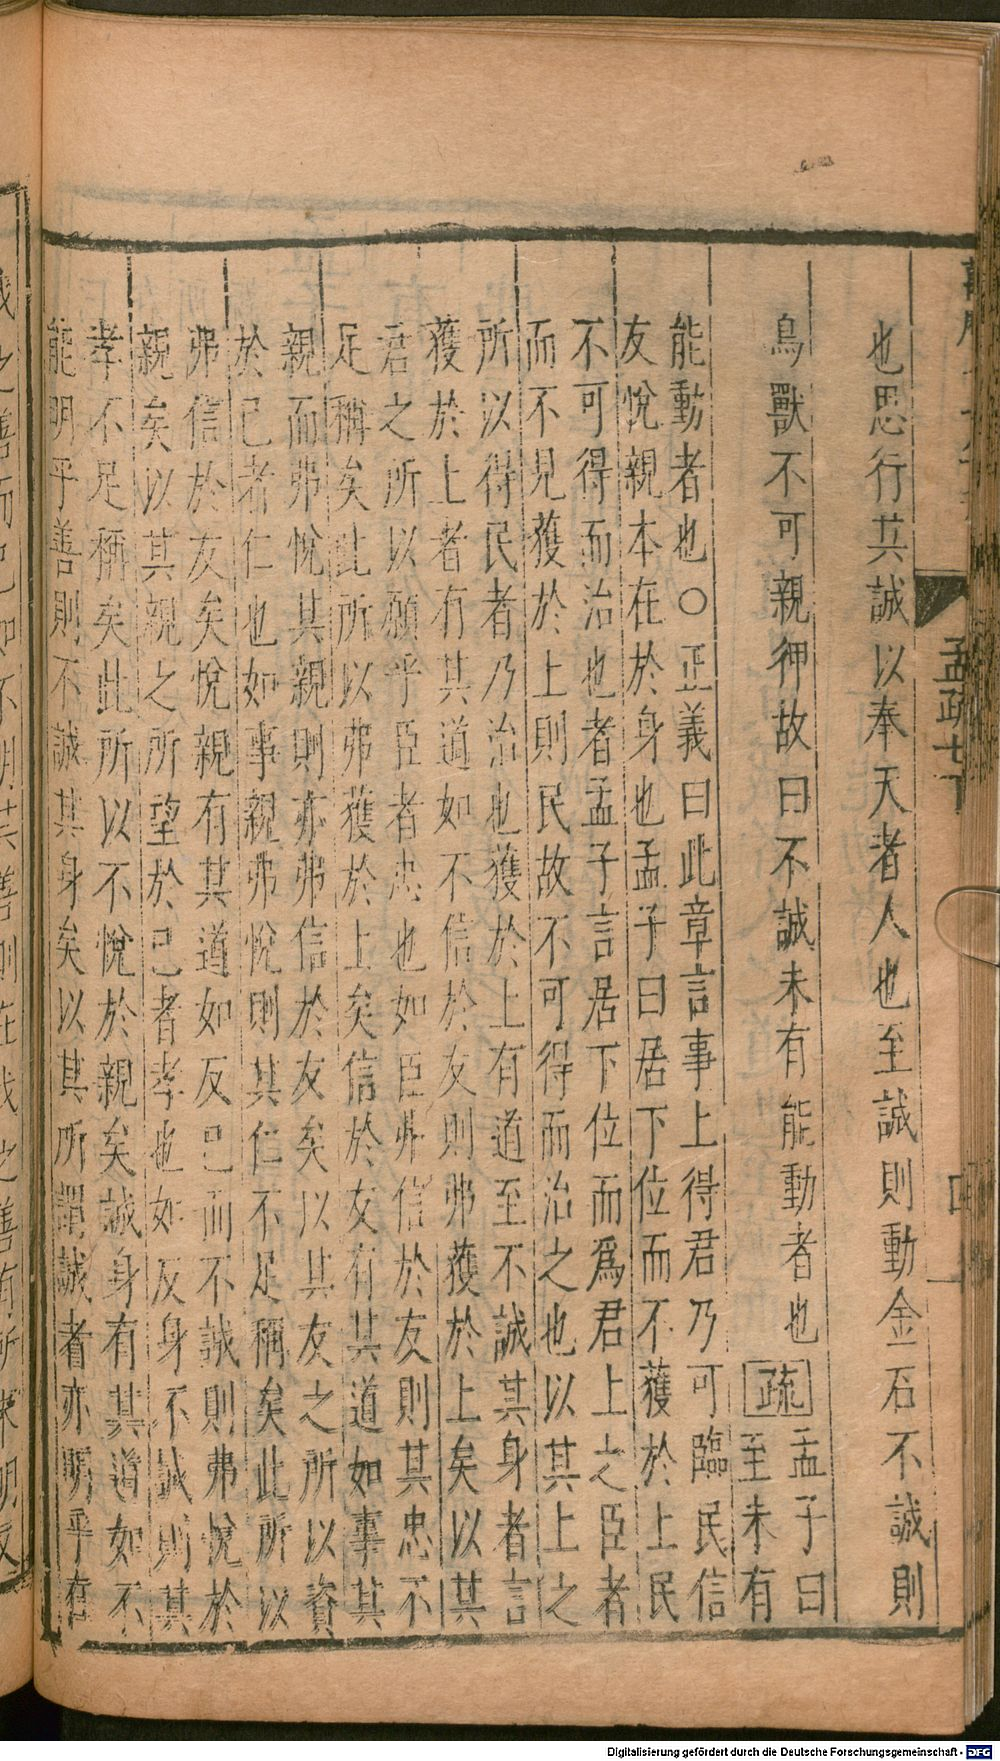 也思行其誠以奉天者人也至誠則動金石不誠則
鳥獸不可親狎故曰不誠未有能動者也疏孟子曰
至未有
能動者也○正義曰此章言事上得君乃可臨民信
友悅親本在於身也孟子曰居下位而不獲於上民
不可得而治也者孟子言居下位而爲君上之臣者
而不見獲於上則民故不可得而治之也以其上之
所以得民者乃治也獲於上有道至不誠其身者言
獲於上者有其道如不信於友則弗獲於上矣以其
君之所以願乎臣者忠也如臣弗信於友則其忠不
足稱矣此所以弗獲於上矣信於友有其道如事其
親而弗悅其親則亦弗信於友矣以其友之所以資
於己者仁也如事親弗悅則其仁不足稱矣此所以
弗信於友矣悅親有其道如反己而不誠則弗悅於
親矣以其親之所望於己者孝也如反身不誠則其
孝不足稱矣此所以不悅於親矣誠身有其道如不
能明乎善則不誠其身矣以其所謂誠者亦明乎在
孟疏七下
四
Digitalisierung gefördert durch die Deutsche Forschungsgemeinschaft - DFG